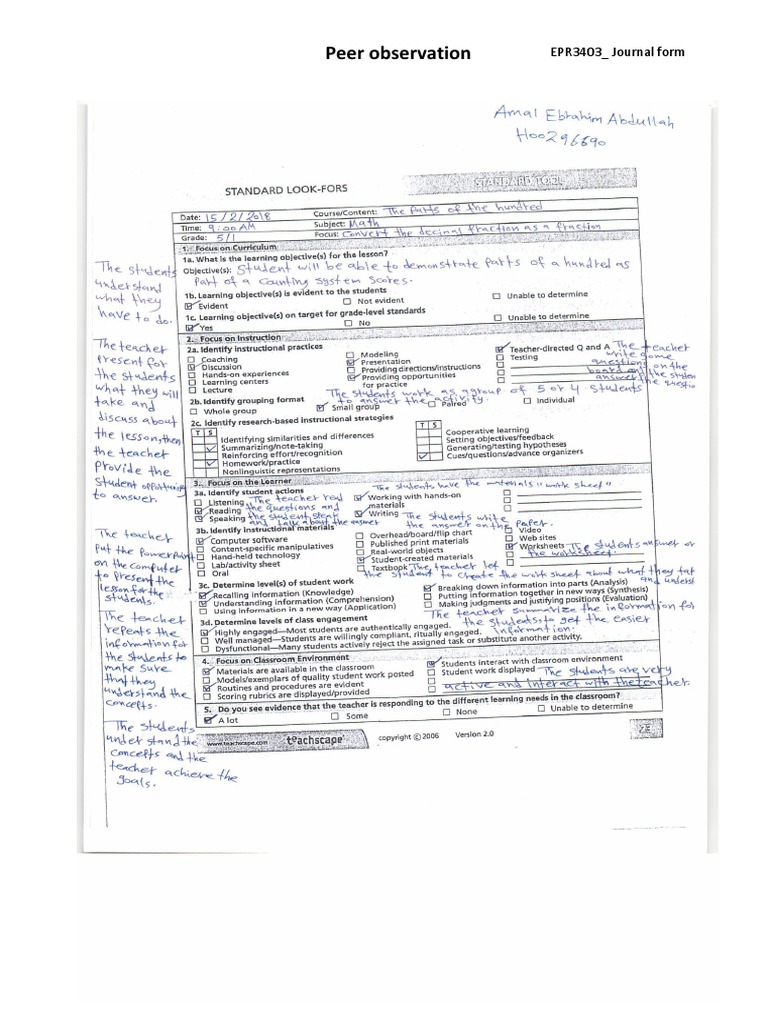 Peer observation
EPR3403_ Journal form
Amal Ebrahim Abdullah
H00296690
STANDARD LOOK-FORS
STANDARD TOOL
Date: 15/2/2018 Course/Content: The parts of the hundred
Time: 9:00 AM Subject: Math
Grade: 5/1 Focus: Convert the decimal fraction as a fraction
1. Focus on Curriculum
1a. What is the learning objective(s) for the lesson?
Objective(s): Student will be able to demonstrate parts of a hundred as
part of a counting system scores.
1b. Learning objective(s) is evident to the students
Evident Not evident Unable to determine
1c. Learning objective(s) on target for grade-level standards
Yes No Unable to determine
The students
understand
what they
have to do.
2. Focus on Instruction
2a. Identify instructional practices
Coaching
Discussion
Hands-on experiences
Learning centers
Lecture
Modeling
Presentation
Providing directions/instructions
Providing opportunities
for practice
Teacher-directed Q and A The teacher
Testing write some
question
board on the
answer the studen
the questio
The students work as a group of 5 or 4 students
to answer the activity.
2b. Identify grouping format
Whole group Small group Paired Individual
2c. Identify research-based instructional strategies
T S
Identifying similarities and differences
Summarizing/note-taking
Reinforcing effort/recognition
Homework/practice
Nonlinguistic representations
T S
Cooperative learning
Setting objectives/feedback
Generating/testing hypotheses
Cues/questions/advance organizers
The teacher
present for
the students
what they will
take and
discuss about
the lesson, then
the teacher
provide the
student opportunities
to answer.
3. Focus on the Learner
The students have the materials "work sheet"
3a. Identify student actions
Listening The teacher read
Reading the questions and
Speaking the student speak
and talk about the answer
Working with hands-on
materials
Writing The students write
the answer on the paper.
3b. Identify instructional materials
Computer software
Content-specific manipulatives
Hand-held technology
Lab/activity sheet
Oral
Overhead/board/flip chart
Published print materials
Real-world objects
Student-created materials
Textbook The teacher let
the student to create the work sheet about what they take
and underst
Video
Web sites
Worksheets The students answer on
the worksheet
3c. Determine level(s) of student work
Recalling information (Knowledge)
Understanding information (Comprehension)
Using information in a new way (Application)
Breaking down information into parts (Analysis)
Putting information together in new ways (Synthesis)
Making judgments and justifying positions (Evaluation)
The teacher summarize the information for
the students to get the easier
information.
3d. Determine levels of class engagement
Highly engaged—Most students are authentically engaged.
Well managed—Students are willingly compliant, ritually engaged.
Dysfunctional—Many students actively reject the assigned task or substitute another activity.
The teacher
put the PowerPoint
on the computer
to present the
lesson for the
students.
The teacher
repeats the
information for
the students to
make sure
that they
understand the
concepts.
4. Focus on Classroom Environment
Materials are available in the classroom
Models/exemplars of quality student work posted
Routines and procedures are evident
Scoring rubrics are displayed/provided
Students interact with classroom environment
Student work displayed The students are very
active and interact with the teacher.
5. Do you see evidence that the teacher is responding to the different learning needs in the classroom?
A lot Some None Unable to determine
The students
understand the
concepts and the
teacher achieve the
goals.
www.teachscape.com teachscape copyright © 2006 Version 2.0